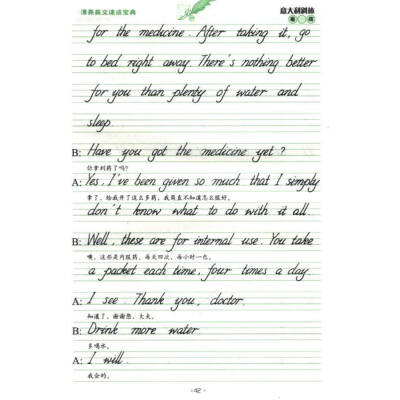 漂亮英文速成宝典
意大利斜练
for the medicine. After taking it, go
to bed right away. There's nothing better
for you than plenty of water and
sleep.
B: Have you got the medicine yet?
你拿到药了吗?
A: Yes, I've been given so much that I simply
拿了。给我开了这么多药,我简直不知道怎么服好。
don't know what to do with it all.
B: Well, these are for internal use. You take
噢,这些是内服药,每天四次,每小时一包。
a packet each time, four times a day.
A: I see. Thank you, doctor.
知道了,谢谢您,大夫。
B: Drink more water.
多喝水。
A: I will.
我会的。
-42-